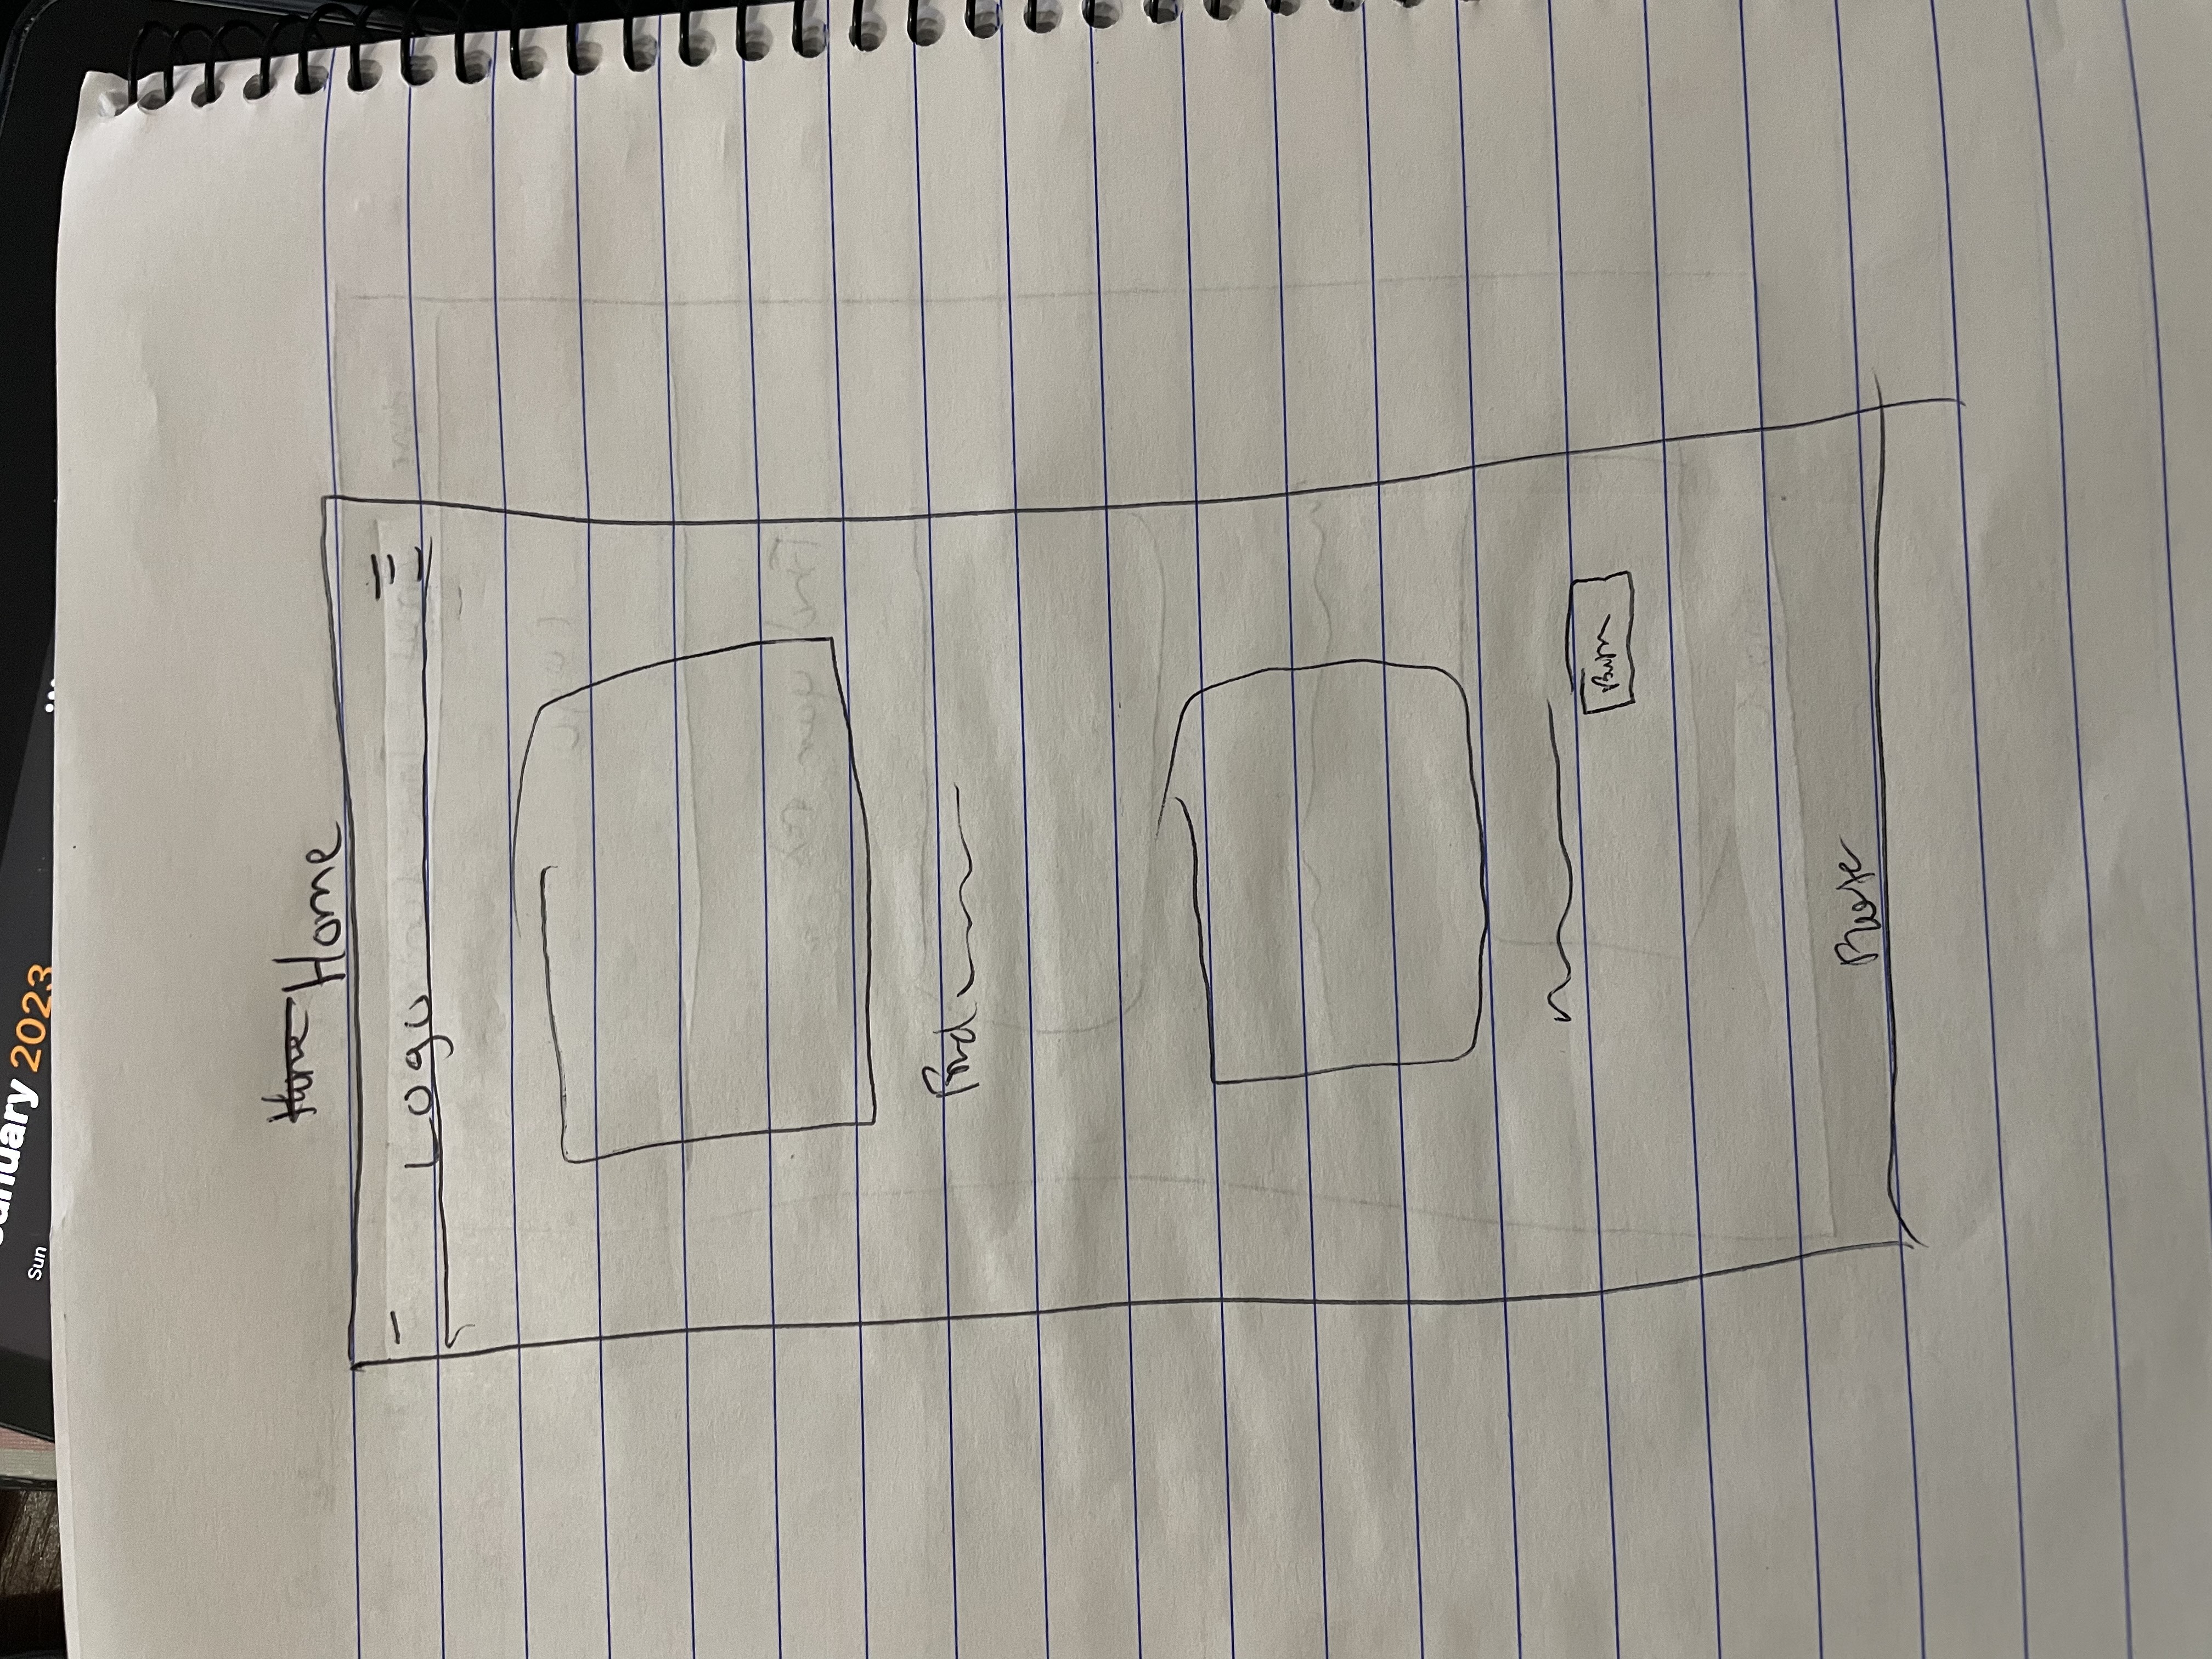 January 2023
Sun
Home Home
Logo
Find
Button
Footer